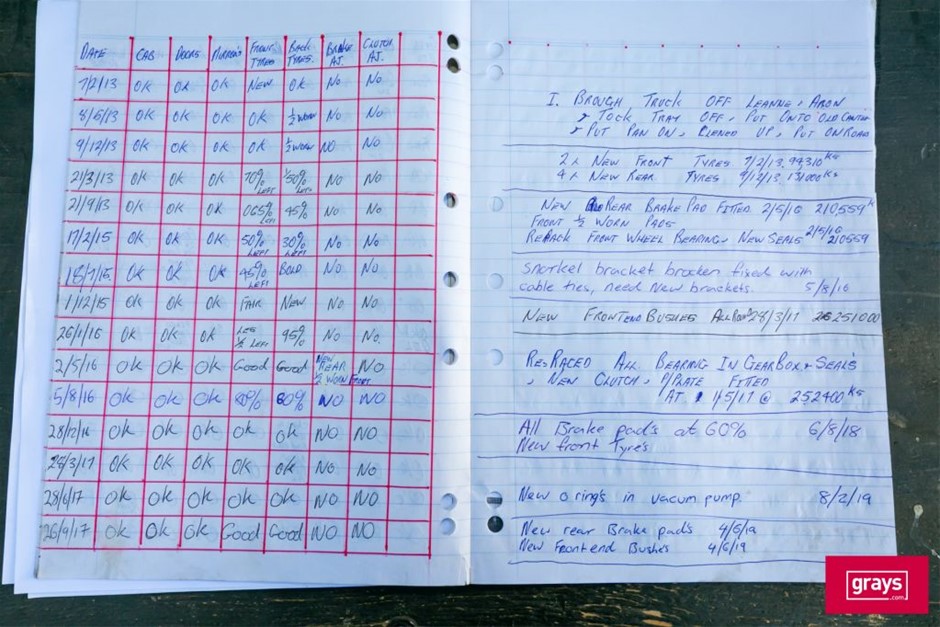 DATE CAB DOORS MIRROR'S FRONT TYRES BACK TYRES. BRAKE AJ. CLUTCH AJ.
7/2/13 OK OK OK NEW OK NO NO
8/6/13 OK OK OK OK ½ WORN NO NO
9/12/13 OK OK OK OK ½ WORN NO NO
21/3/13 OK OK OK 70% LEFT 50% LEFT NO NO
21/9/13 OK OK OK 065% LEFT 45% NO NO
17/2/15 OK OK OK 50% LEFT 30% LEFT NO NO
18/7/15 OK OK OK 45% LEFT BOLD NO NO
1/12/15 OK OK OK FAIR NEW NO NO
26/1/16 OK OK OK LES ½ LEFT 95% NO NO
2/5/16 OK OK OK Good Good NEW REAR ½ WORN FRONT NO
5/8/16 OK OK OK 60% NO NO
28/12/16 OK OK OK OK OK NO NO
28/3/17 OK OK OK OK OK NO NO
28/6/17 OK OK OK OK OK NO NO
26/9/17 OK OK OK Good Good NO NO
I. BROUGH TRUCK OFF LEANNE, ARON
TOCK TRAY OFF, PUT ONTO OLD
PUT PAN ON, UP, PUT ON ROAD
2 x NEW FRONT TYRES 7/2/13. 99310 Ks
4 x NEW REAR TYRES 9/12/13. 131000 Ks
NEW REAR BRAKE PAD FITTED 2/5/16 210559 K
FRONT ½ WORN PADS
REPACK FRONT WHEEL BEARING, NEW SEALS 2/5/16 210559
Snorkel bracket brocken fixed with
cable ties, need New brackets. 5/8/16
NEW FRONTEND BUSHES 28/3/17 251000
RE-RACED ALL BEARING IN GEARBOX + SEALS
, NEW CLUTCH, P/PLATE FITTED
AT 1/5/17 @ 252400 Ks
All Brake pad's at 60% 6/8/18
New front Tyre's
New o ring's in vacum pump. 8/2/19
New rear Brake pad's 4/6/19
New Frontend Bushe's 4/6/19
grays
.com